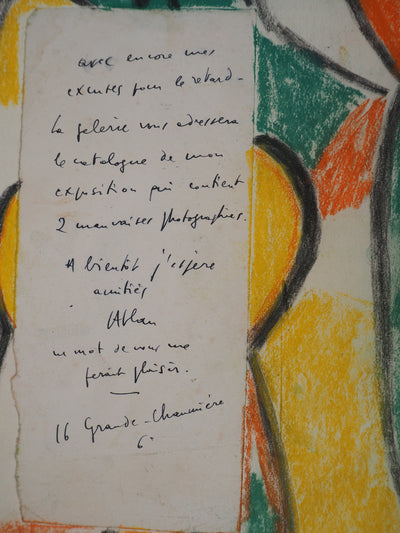 avec encore mes
excuses pour le retard -
La galerie vous adressera
le catalogue de mon
exposition qui contient
2 mauvaises photographies.
A bientôt j'espère
amitiés
Atlan
un mot de vous me
ferait plaisir.
16 Grande-Chaumière
6e